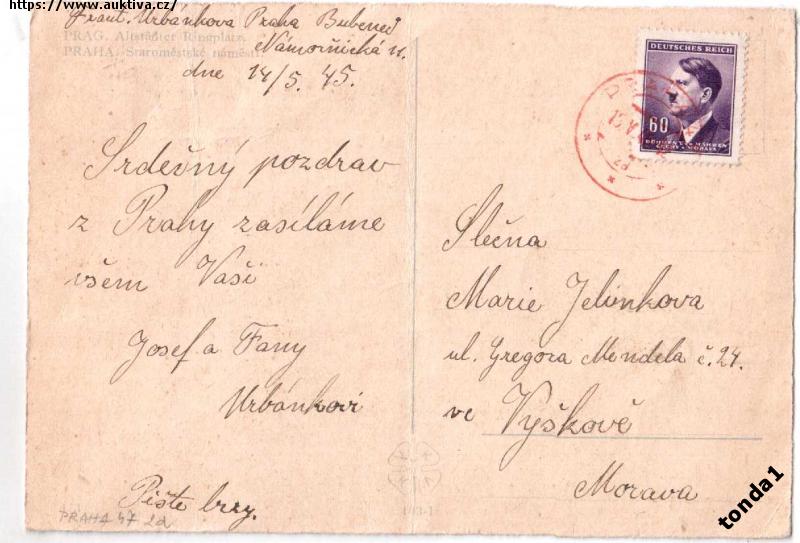 https://www.auktiva.cz/
Frant. Urbánkova Praha Bubeneč
Námořnická
PRAG. Altstädter Ringplatz.
PRAHA. Staroměstské náměstí.
dne 14/5. 45.
Srdečný pozdrav
z Prahy zasíláme
všem Vaši
Josef a Fany
Urbánkovi
Pište brzy.
PRAHA 47
DEUTSCHES REICH
60
BÖHMEN u. MÄHREN
ČECHY a MORAVA
Slečna
Marie Jelinkova
ul. Gregora Mendela č. 24.
ve Vyškově
Morava
tonda1